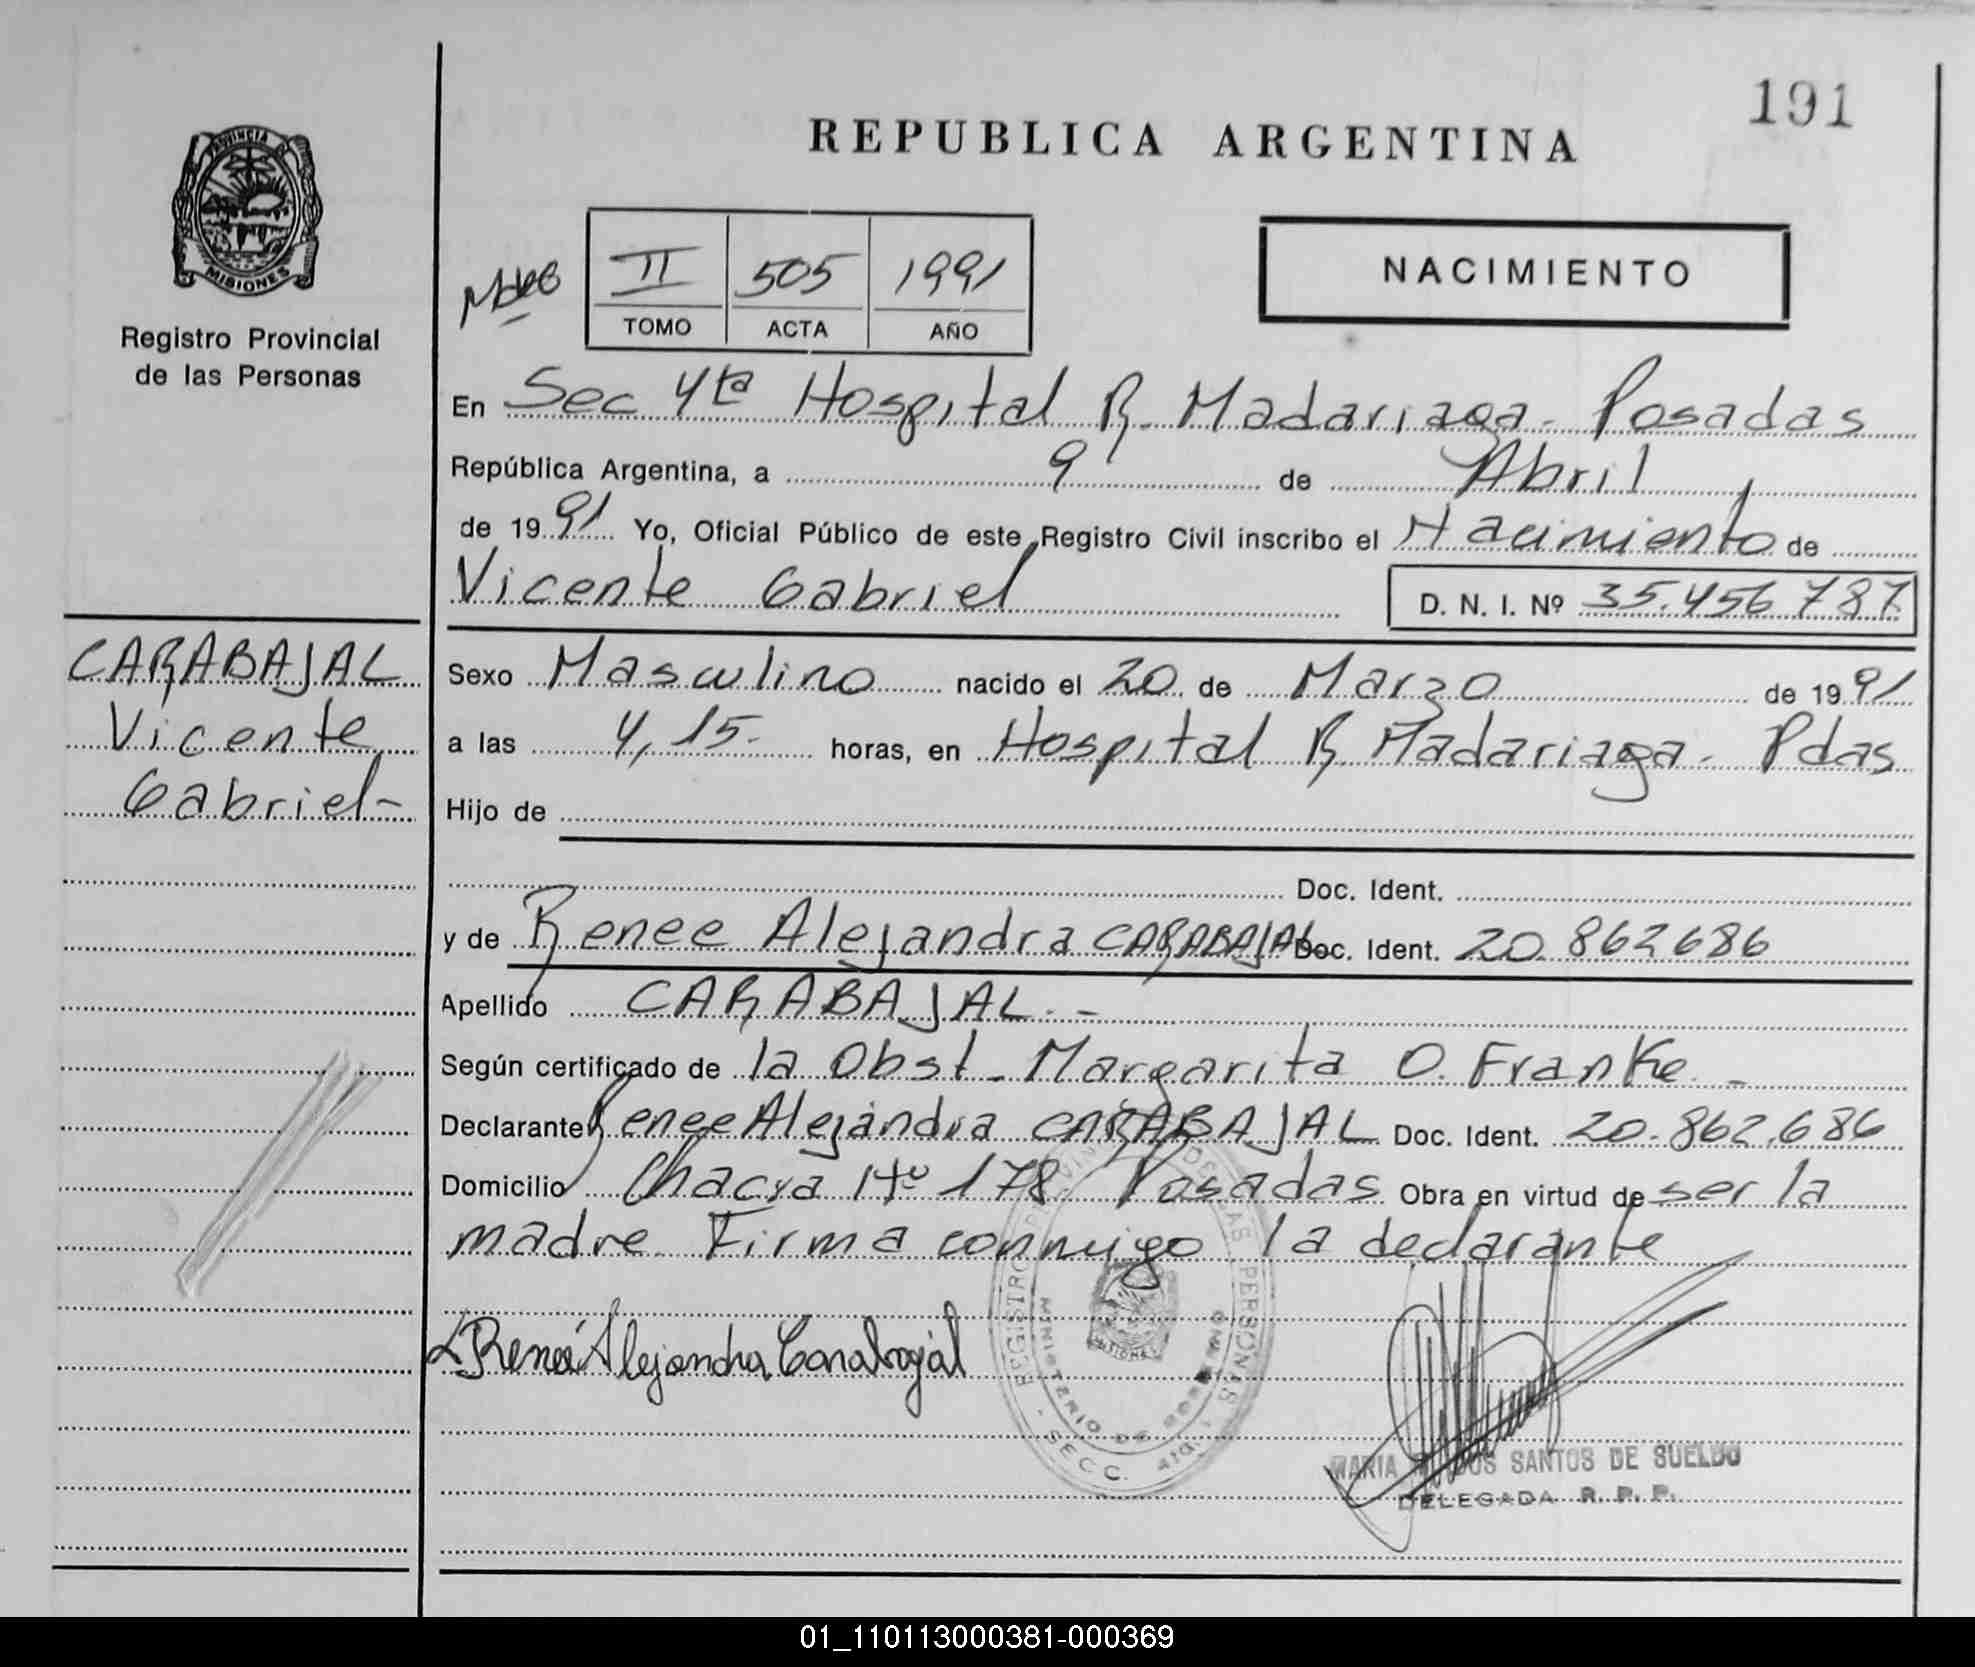 191
REPUBLICA ARGENTINA
PROVINCIA DE
MISIONES
Registro Provincial
de las Personas
II 505 1991
TOMO ACTA AÑO
NACIMIENTO
En Sec 4ta Hospital R. Madariaga - Posadas
República Argentina, a 9 de Abril
de 1991 Yo, Oficial Público de este Registro Civil inscribo el Nacimiento de
Vicente Gabriel D. N. I. Nº 35.456 787
CARABAJAL
Vicente
Gabriel-
Sexo Masculino nacido el 20 de Marzo de 1991
a las 4,15. horas, en Hospital R Madariaga - Pdas
Hijo de
Doc. Ident.
y de Renee Alejandra CARABAJAL Doc. Ident. 20.862686
Apellido CARABAJAL.-
Según certificado de la Obst. Margarita O. Franke -
Declarante Renee Alejandra CARABAJAL Doc. Ident. 20.862.686
Domicilio Chacra Nº 178 Posadas Obra en virtud de ser la
madre. Firma conmigo la declarante
Reneé Alejandra Carabajal
REGISTRO PERSONAS
MINISTERIO DE
MISIONES
SECC.
MARIA SANTOS DE SUELDO
DELEGADA R. P. P.
01_110113000381-000369